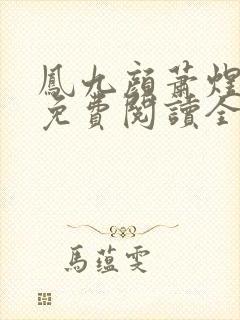 鳳九顏蕭煌
免費閱讀全
馬蘊雯